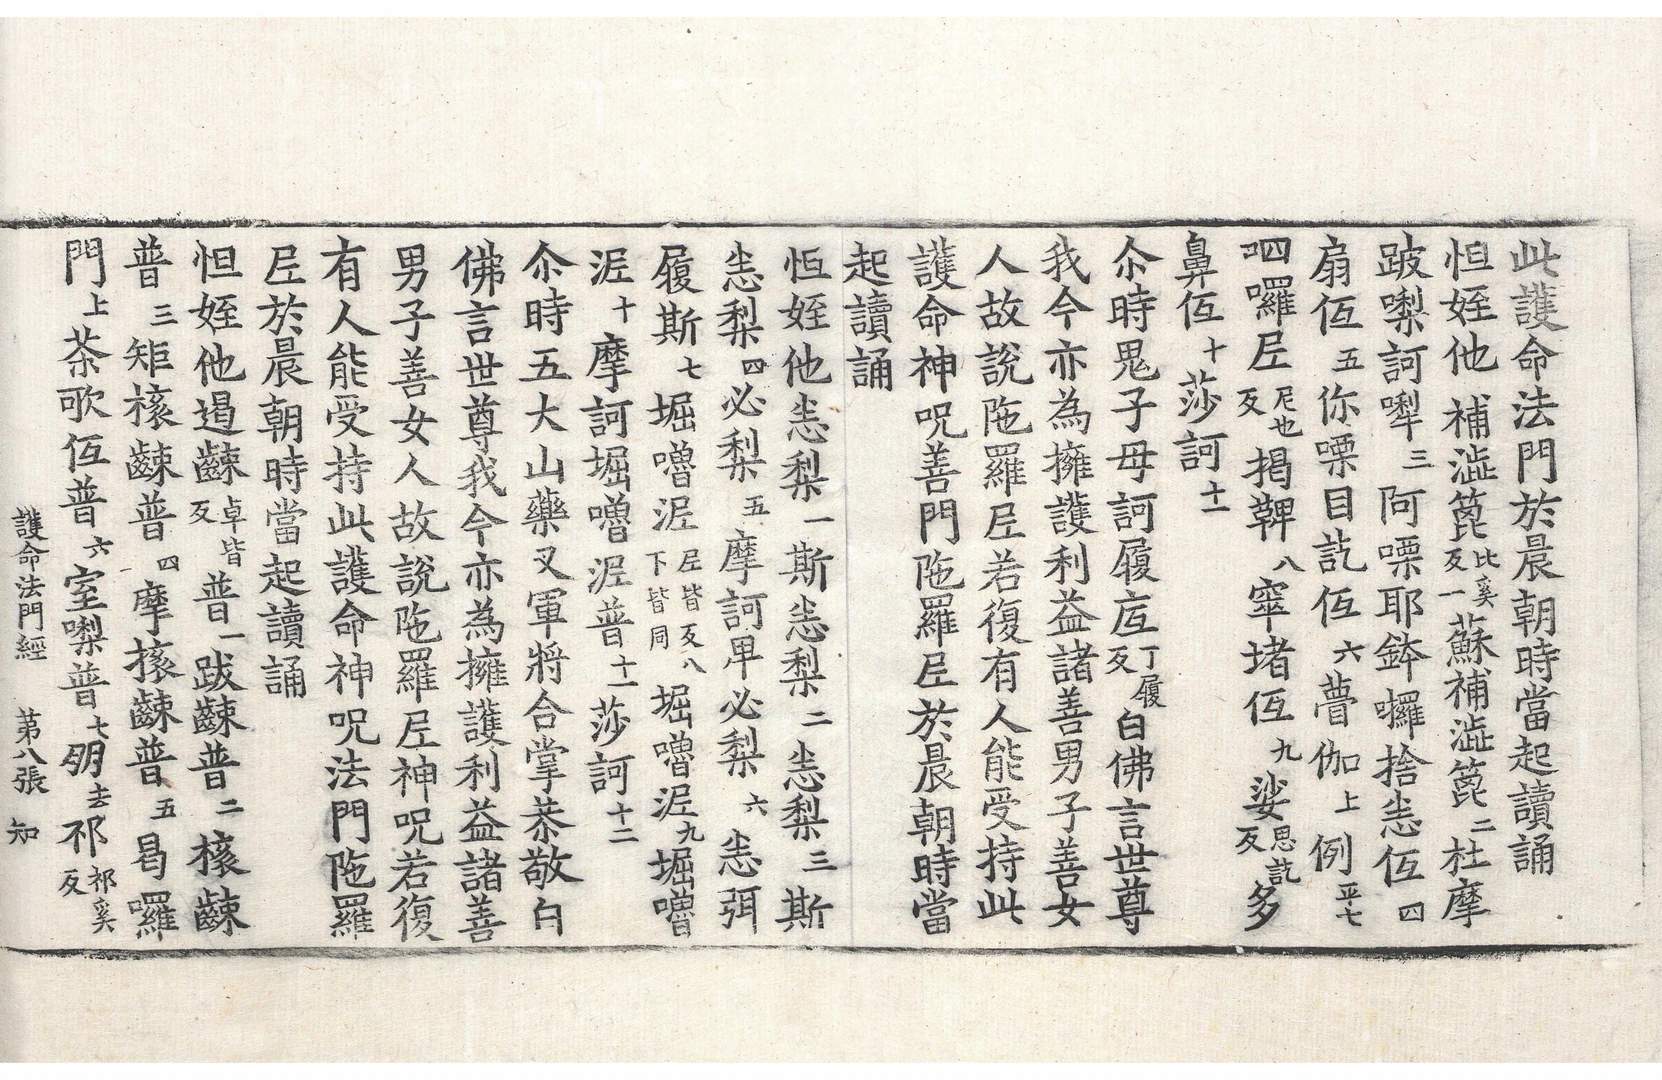 此護命法門於晨朝時當起讀誦
怛姪他補澁箆比奚反一蘇補澁箆二杜摩
跛㗚訶犁三阿㗚耶鉢囉捨恙仾四
扇仾五你㗚目訖仾六瞢伽上例平七
呬囉𡰱尼也反揭鞞八窣堵仾九娑思訖反多
鼻仾十莎訶十一
尒時鬼子母訶履㡳丁履反白佛言世尊
我今亦為擁護利益諸善男子善女
人故說陁羅𡰱若復有人能受持此
護命神呪善門陁羅𡰱於晨朝時當
起讀誦
怛姪他恙梨一斯恙梨二恙梨三斯
恙梨四必梨五摩訶卑必梨六恙弭
履斯七堀嚕泥𡰱皆反八下皆同堀嚕泥九堀嚕
泥十摩訶堀嚕泥普十一莎訶十二
尒時五大山藥叉軍將合掌恭敬白
佛言世尊我今亦為擁護利益諸善
男子善女人故說陁羅𡰱神呪若復
有人能受持此護命神呪法門陁羅
𡰱於晨朝時當起讀誦
怛姪他遏齼卓皆反普一跋齼普二榱齼
普三矩榱齼普四摩榱齼普五曷囉
門上茶歌仾普六室㗚普七朙去祁祁奚反
護命法門經　第八張　知